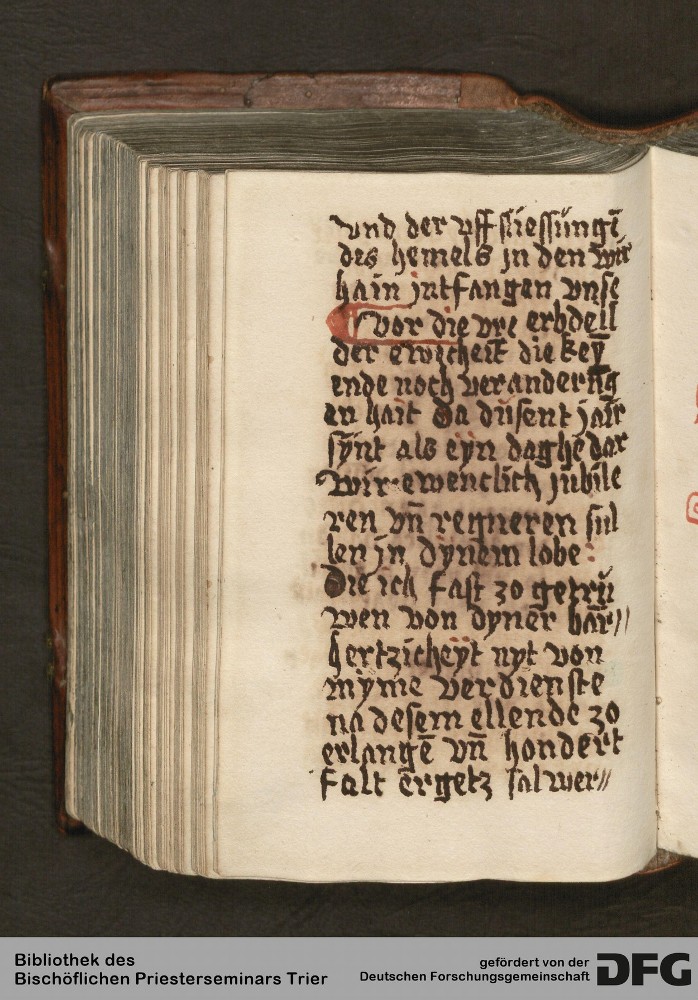 vnd der vff sliessungē
des hemels jn den wir
hain jntfangen vnse
vor die vre erbdell
der ewicheit die keÿ
ende noch veranderūg
en hait Da dusent jair
sÿnt als eÿn daghe dar
wir ewenclich jubile
ren vn̄ regneren sul
len jn dynem lobe:
Die ich fast zo getru
wen von dyner bar//
hertzicheÿt nyt von
mÿme verdienste
na desem ellende zo
erlangē vn̄ hondert
falt ergetz sal wer//
Bibliothek des
Bischöflichen Priesterseminars Trier
gefördert von der
Deutschen Forschungsgemeinschaft
DFG